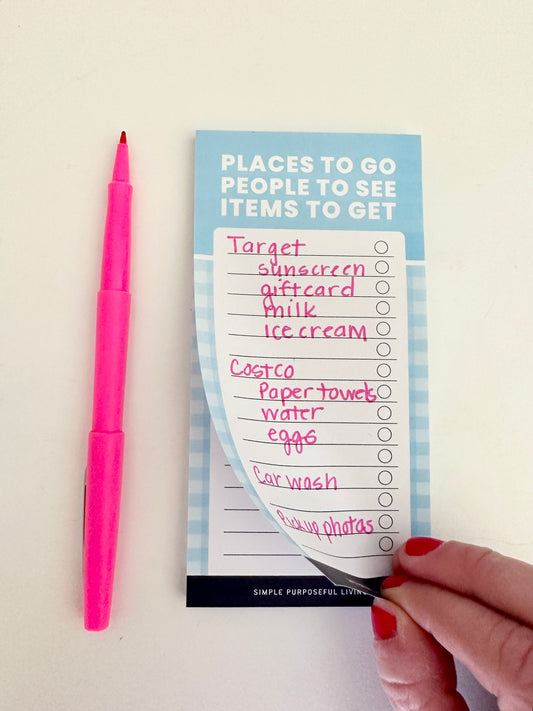 PLACES TO GO
PEOPLE TO SEE
ITEMS TO GET
Target
sunscreen
giftcard
milk
ice cream
Costco
Paper towels
water
eggs
Car wash
Pickup photos
SIMPLE PURPOSEFUL LIVING